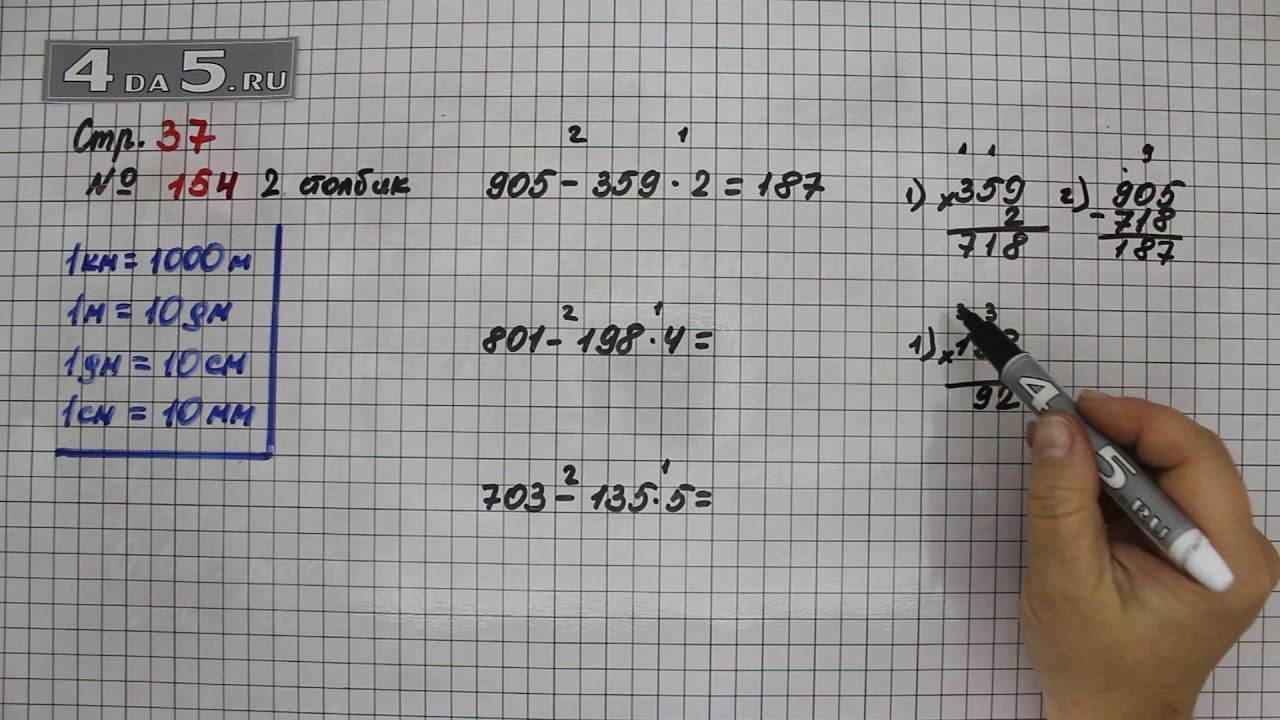 4 DA 5.RU
Стр. 37
№ 154 2 столбик
1км = 1000 м
1м = 10 дм
1дм = 10 см
1см = 10 мм
2 1
905 - 359 · 2 = 187
2 1
801 - 198 · 4 =
2 1
703 - 135 · 5 =
1 1
1) × 359
2
718
9
2) - 905
718
187
3
1) × 1
92
4 5.RU